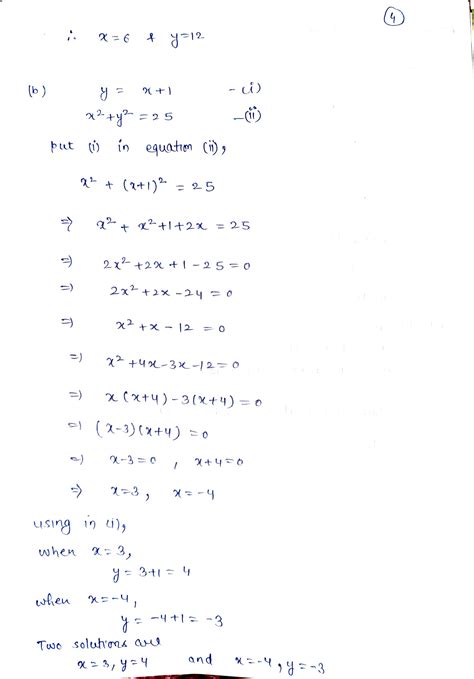 4
∴ x=6 & y=12
(b) y = x+1 -(i)
x²+y² = 25 -(ii)
put (i) in equation (ii),
x² + (x+1)² = 25
⇒ x² + x²+1+2x = 25
⇒ 2x²+2x+1-25=0
⇒ 2x²+2x-24=0
⇒ x²+x-12=0
⇒ x²+4x-3x-12=0
⇒ x(x+4)-3(x+4)=0
⇒ (x-3)(x+4)=0
⇒ x-3=0 , x+4=0
⇒ x=3, x=-4
using in (i),
when x=3,
y=3+1=4
when x=-4,
y=-4+1=-3
Two solutions are
x=3, y=4 and x=-4, y=-3